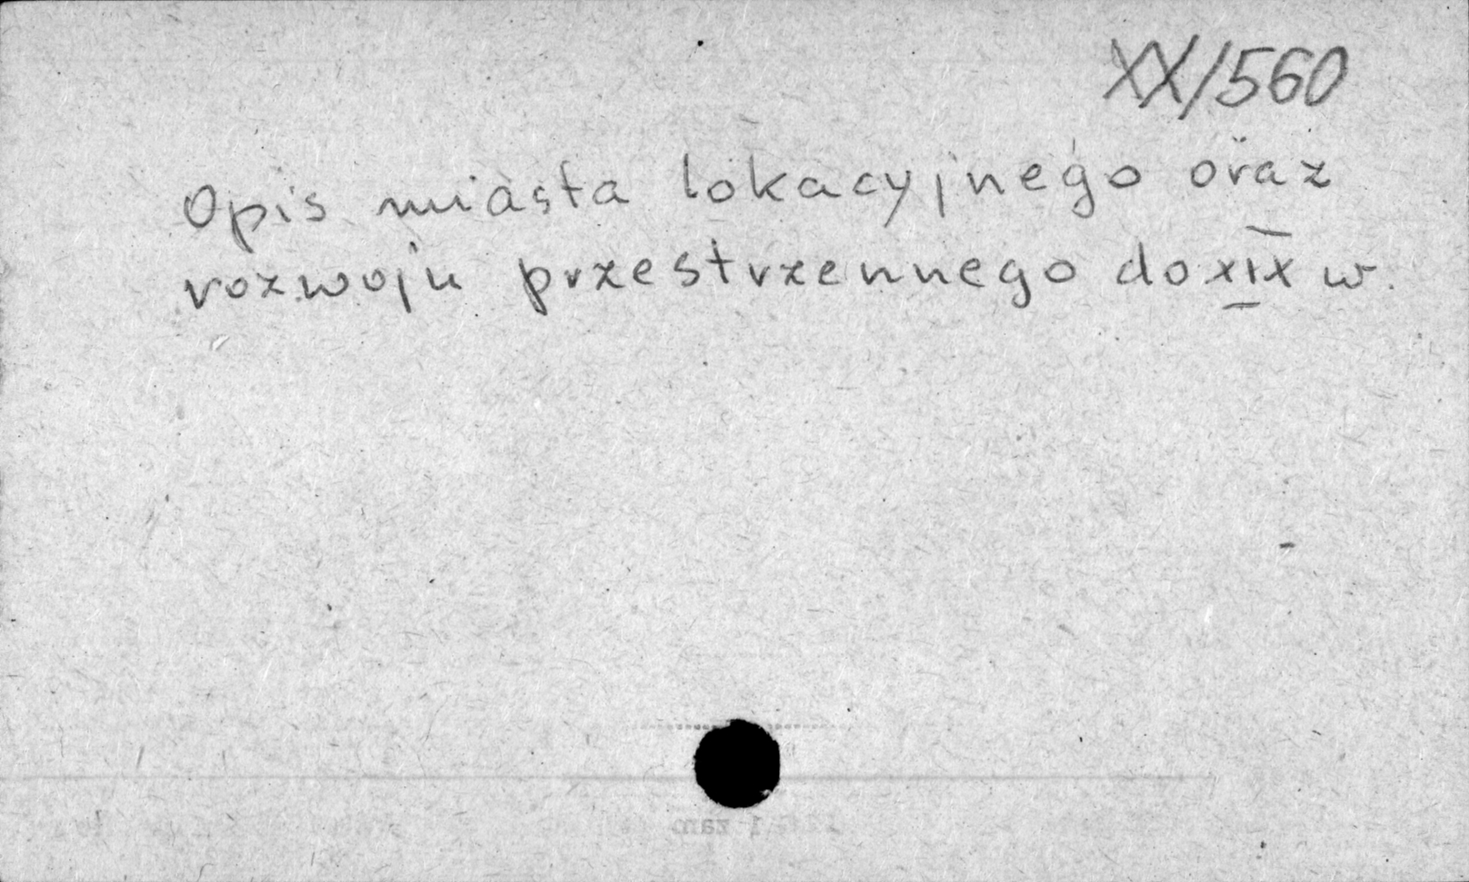 XX/560
Opis miasta lokacyjnego oraz
rozwoju przestrzennego do XIX w.